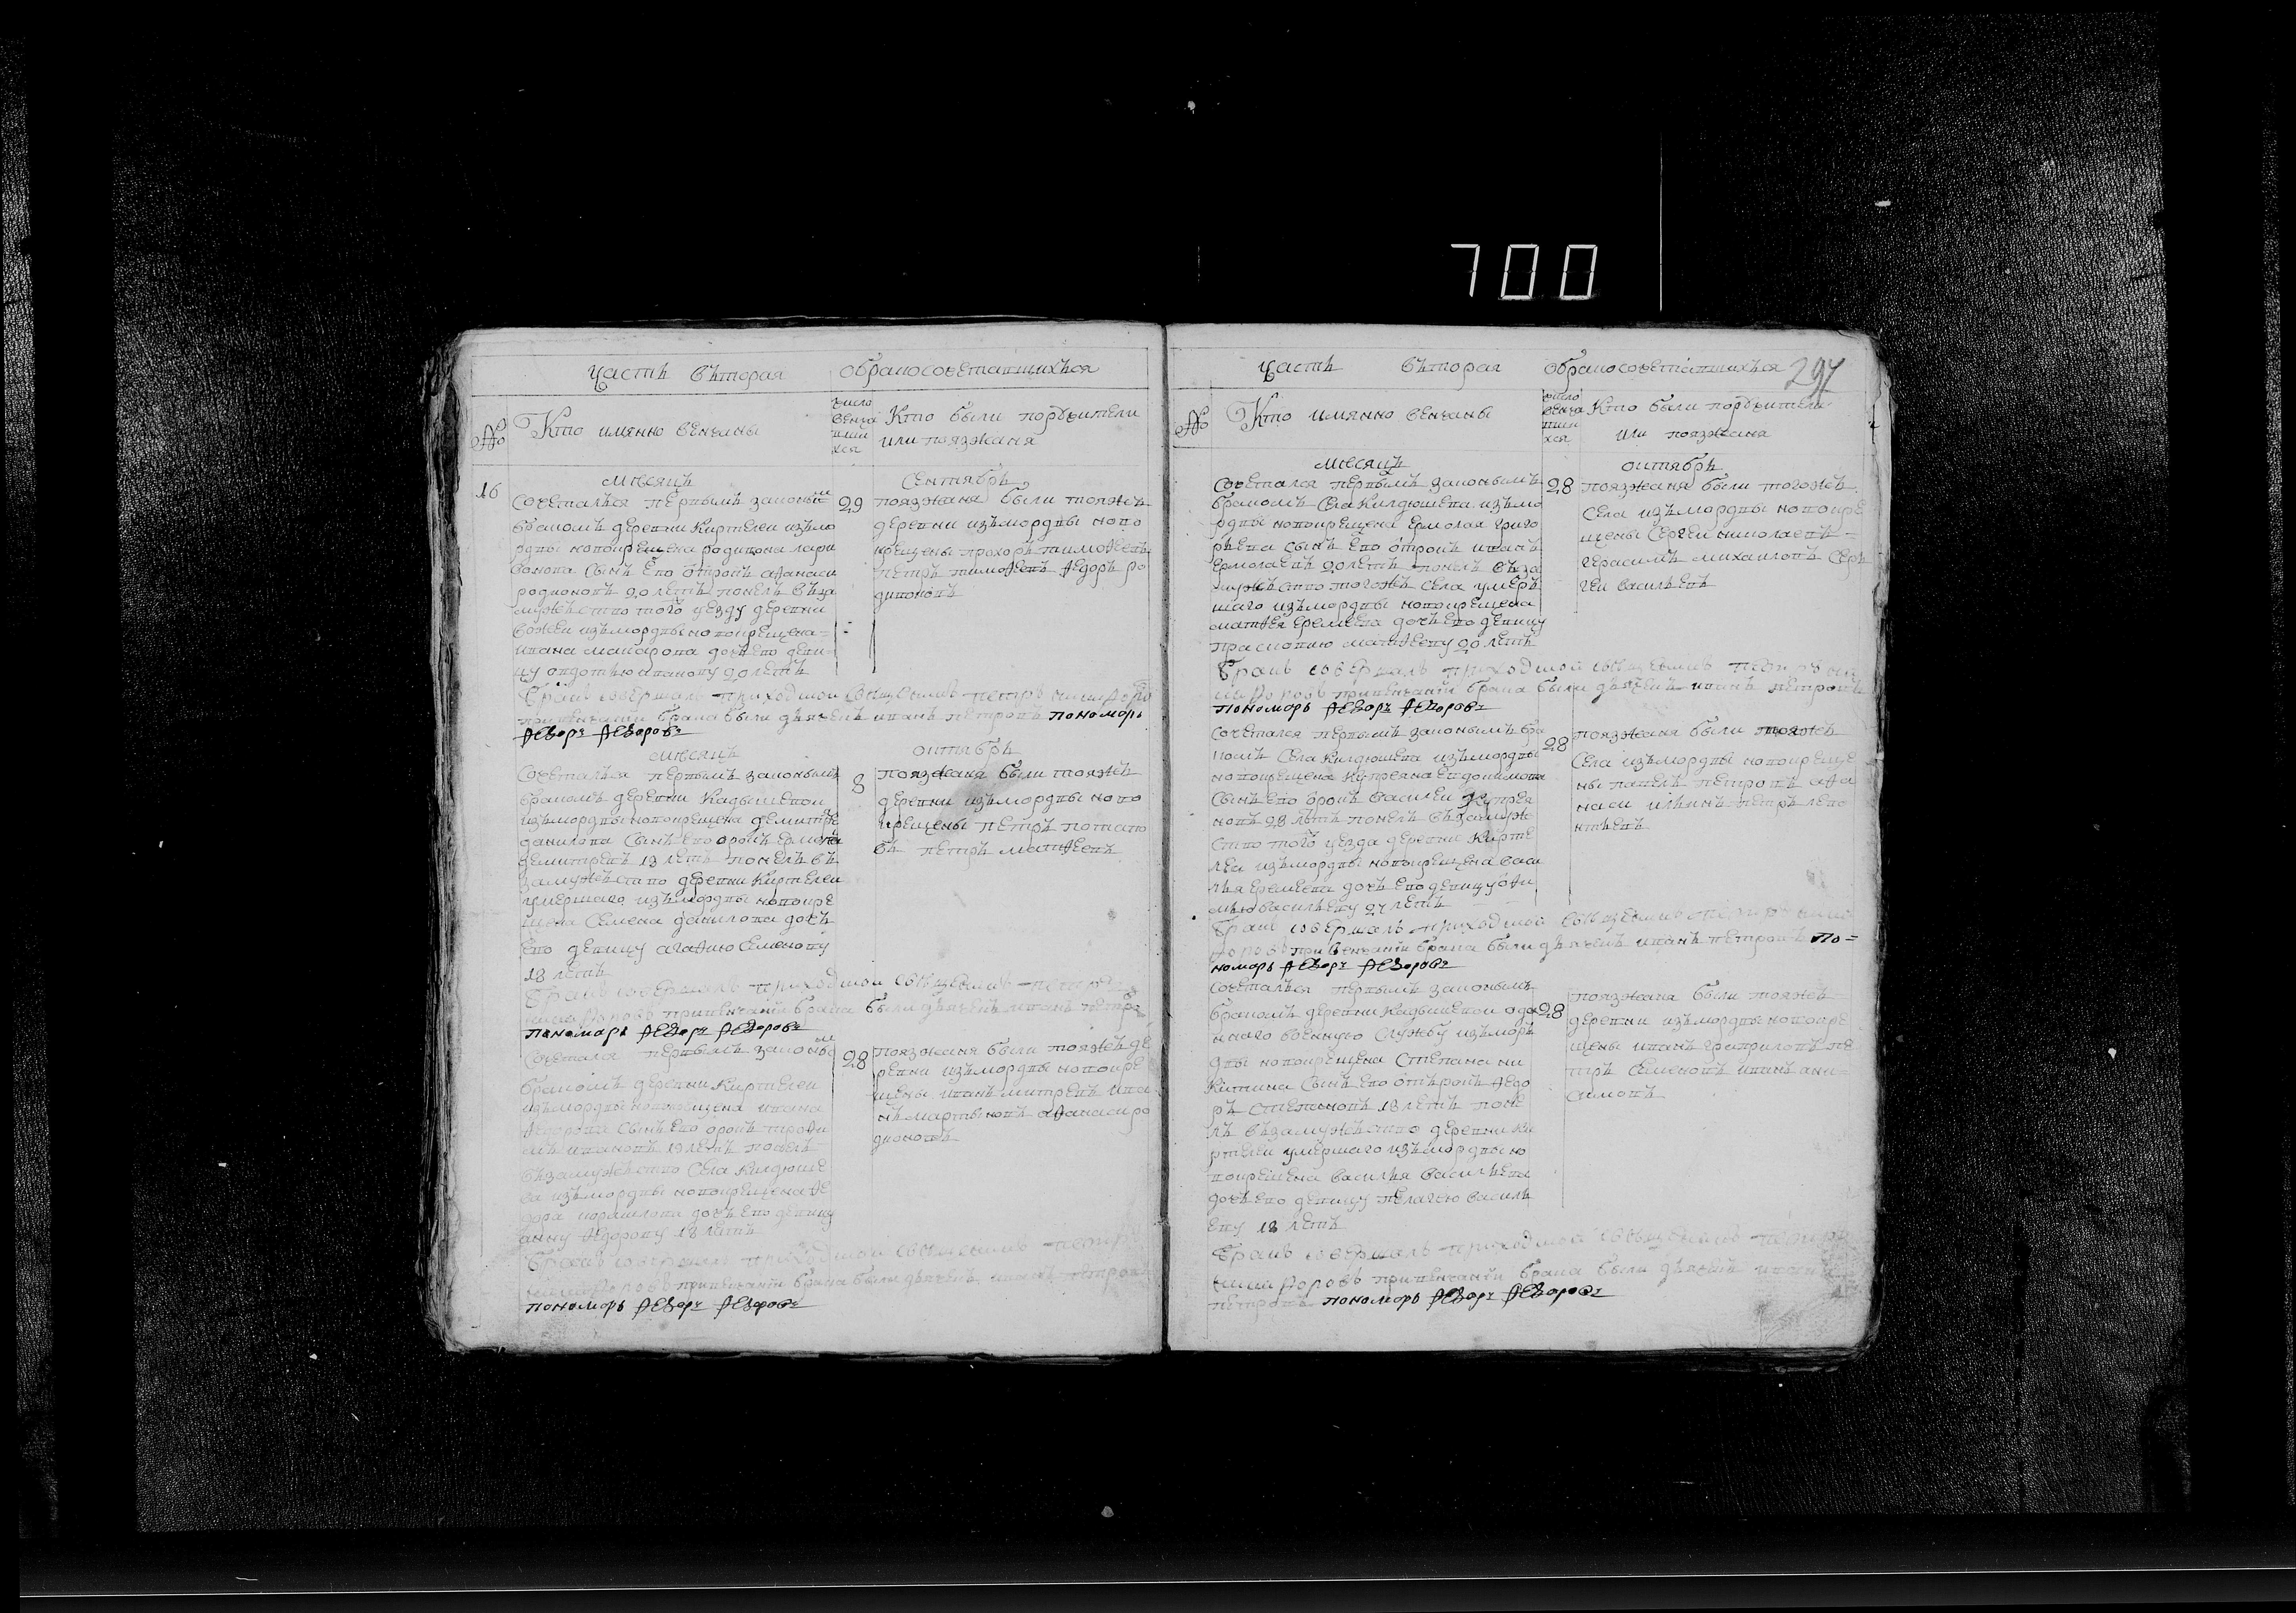 700
Часть вѣторая
обракосочетавшихъся
№
Кто имянно венчаны
число венча вшихся
Кто были поручители
или поязжаня
16
месяцъ
Сентябрь
Сочеталься первымъ законым
бракомъ деревни Киртелеи изъмо
рдвы новокрещена родивона лари
вонова сынъ ево отрокъ афанаси
родионовъ 20 летъ понелъ въза
мужъство того уезду деревни
изъмордвы новокрещена =
ивана макарова дочь ево деви
цу овдотью иванову 20 летъ
29
поязжаня были тояжъ
деревни изъмордвы ново
крещены прохоръ тимофеевъ
петръ тимофеевъ федоръ ро
дивоновъ
Бракъ совершалъ приходской священникъ петръ
привенчании брака были дьячекъ иванъ петровъ пономарь
Федоръ Федоровъ
месяцъ
октябрь
Сочеталься первымъ законымъ
бракомъ деревни Кадышевои
изъмордвы новокрещена демитре
данилова сынъ ево
демитревъ 19 летъ понелъ въ
замужъство деревни Киртелеи
умершаго изъмордвы новокре
щена Семена данилова дочь
ево девицу агафью Семенову
18 летъ
8
поязжаня были тояжъ
деревни изъмордвы ново
крещены петръ потапо
въ петръ матфеевъ
Бракъ совершалъ приходской священникъ петръ
привенчании брака были дьячекъ иванъ петровъ
пономарь Федоръ Федоровъ
Сочетался первымъ законы
бракомъ деревни Киртелеи
изъмордвы новокрещена ивана
федорова сынъ ево трофи
мъ ивановъ 19 летъ понелъ
възамужъство Села Килдюше
ва изъмордвы новокрещена фе
дора дочь ево девицу
анну федорову 18 летъ
28
поязжаня были тояжъ де
ревни изъмордвы новокре
щены иванъ митревъ ива
нъ мартыновъ афанаси ро
дионовъ
Бракъ совершалъ приходской священникъ петръ
привенчании брака были дьячекъ иванъ петровъ
пономарь Федоръ Федоровъ
Часть
вѣторая
обракосочетавшихъся
297
№
Кто имянно венчаны
число венча вшихся
Кто были поручители
или поязжаня
месяцъ
октябрь
Сочетался первымъ законымъ
бракомъ Села Килдюшева изъмо
рдвы новокрещена Ермолая григо
рьева сынъ ево отрокъ иванъ
Ермолаевъ 20 летъ понелъ въза
мужъство тогожъ Села умеръ
шаго изъмордвы новокрещена
матфея Еремева дочь ево девицу
прасковю матфееву 20 летъ
28
поязжаня были тогожъ
Села изъмордвы новокре
щены Сергеи николаевъ =
герасимъ михаиловъ Сер
геи васильевъ
Бракъ совершалъ приходской священникъ петръ
привенчании брака были дьячекъ иванъ петровъ
пономарь Федоръ Федоровъ
Сочетался первымъ законымъ бра
комъ Села Килдюшева изъмордвы
новокрещена Купреяна Евдокимова
сынъ ево василеи Купрея
новъ 28 летъ понелъ възамуж
ство того уезда деревни Кирте
леи изъмордвы новокрещена васи
лья Еремева дочь ево девицу офи
мью васильеву 27 летъ
28
поязжаня были тояжъ
Села изъмордвы новокреще
ны павелъ петровъ афа
наси ильинъ петръ лео
нтьевъ
Бракъ совершалъ приходской священникъ петръ
привенчании брака были дьячекъ иванъ петровъ по=
номарь Федоръ Федоровъ
Сочеталься первымъ законымъ
бракомъ деревни Кадышевои одо
ннаго военную службу изъмор
двы новокрещена Степана ни
Китина сынъ ево отърокъ федо
ръ степановъ 18 летъ поне
лъ възамужъство деревни Ки
ртелеи умершаго изъмордвы но
вокрещена василья васильева
дочь ево девицу пелагею василь
еву 18 летъ
28
поязжаня были тояжъ
деревни изъмордвы новокре
щены иванъ гавриловъ пе
тръ Семеновъ иванъ ани=
симовъ
Бракъ совершалъ приходской священникъ петръ
привенчании брака были дьячекъ иванъ
петровъ пономарь Федоръ Федоровъ